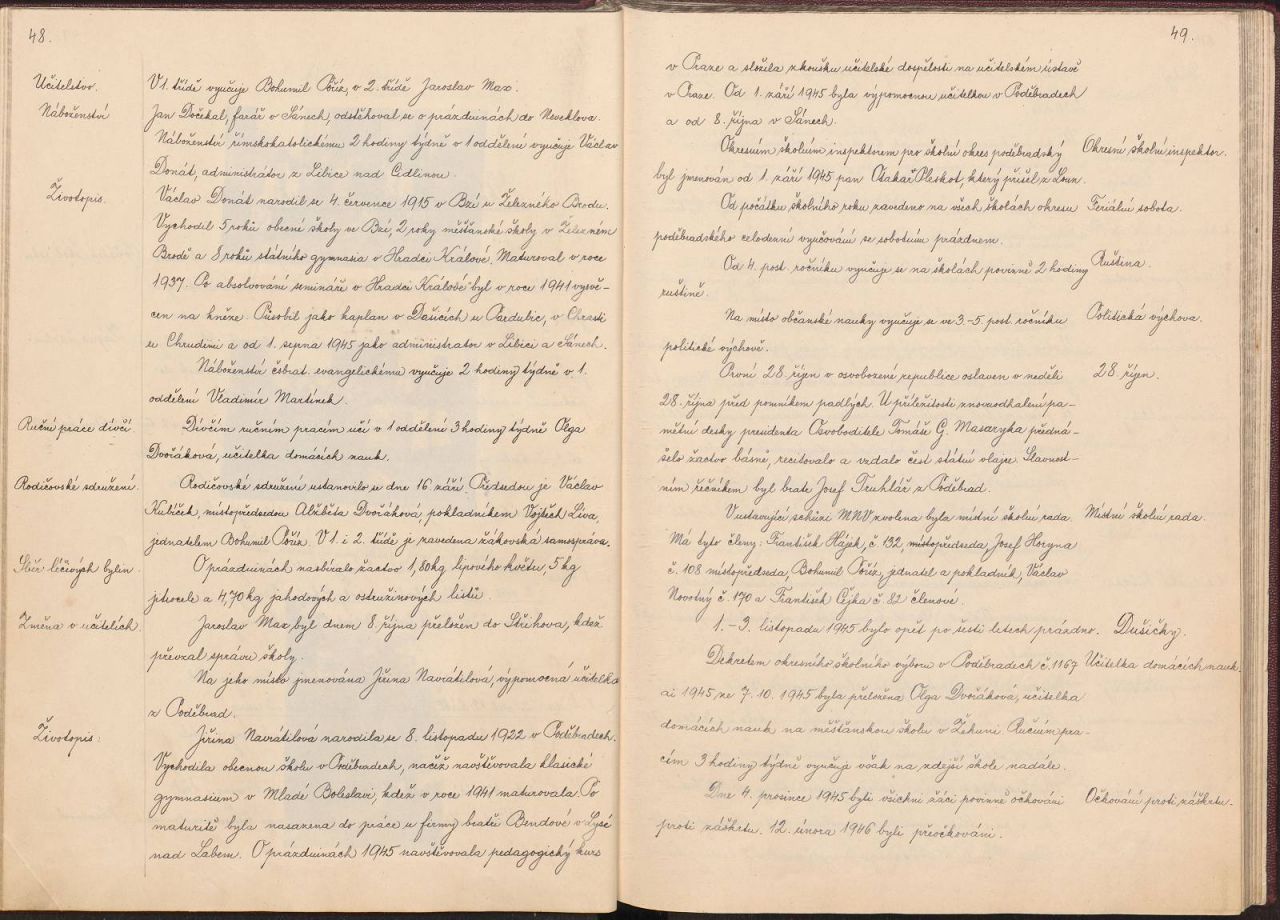 48.
Učitelstvo.
V 1. třídě vyučuje Bohumil Pouz, v 2. třídě Jaroslav Max.
Náboženství
Jan Dočekal, farář v Sánech, odstěhoval se o prázdninách do Neveklova.
Náboženství římskokatolickému 2 hodiny týdně v 1 oddělení vyučuje Václav
Donát, administrátor z Libice nad Cidlinou.
Životopis.
Václav Donát narodil se 4. července 1915 v Bzí u Železného Brodu.
Vychodil 5 roků obecné školy ve Bzí, 2 roky měšťanské školy v Železném
Brodě a 8 roků státního gymnasia v Hradci Králové. Maturoval v roce
1937. Po absolvování semináře v Hradci Králové byl v roce 1941 vysvě-
cen na kněze. Působil jako kaplan v Dašicích u Pardubic, v Chrasti
u Chrudimi a od 1. srpna 1945 jako administrator v Libici a Sánech.
Náboženství česbrat. evangelickému vyučuje 2 hodiny týdně v 1.
oddělení Vladimír Martínek.
Ruční práce dívčí.
Dívčím ručním pracím učí v 1 oddělení 3 hodiny týdně Olga
Dvořáková, učitelka domácích nauk.
Rodičovské sdružení.
Rodičovské sdružení ustanovilo se dne 16. září. Předsedou je Václav
Kubíček, místopředsedou Alžběta Dvořáková, pokladníkem Vojtěch Líva,
jednatelem Bohumil Pouz. V 1. i 2. třídě je zavedena žákovská samospráva.
Sběr léčivých bylin.
O prázdninách nasbíralo žactvo 1,80 kg lipového květu, 5 kg
jitrocele a 4,70 kg jahodových a ostružinových listů.
Změna v učitelích.
Jaroslav Max byl dnem 8. října přeložen do Střihova, kdež
převzal správu školy.
Na jeho místo jmenována Jiřina Navrátilová, výpomocná učitelka
z Poděbrad.
Životopis:
Jiřina Navrátilová narodila se 8. listopadu 1922 v Poděbradech.
Vychodila obecnou školu v Poděbradech, načež navštěvovala klasické
gymnasium v Mladé Boleslavi, kdež v roce 1941 maturovala. Po
maturitě byla nasazena do práce u firmy bratři Bendové v Lysé
nad Labem. O prázdninách 1945 navštěvovala pedagogický kurs
49.
v Praze a složila zkoušku učitelské dospělosti na učitelském ústavě
v Praze. Od 1. září 1945 byla výpomocnou učitelkou v Poděbradech
a od 8. října v Sánech.
Okresním školním inspektorem pro školní okres poděbradský
Okresní školní inspektor.
byl jmenován od 1. září 1945 pan Otakar Pleskot, který přišel z Loun.
Od počátku školního roku zavedeno na všech školách okresu
Feriální sobota.
poděbradského celodenní vyučování se sobotním prázdnem.
Od 4. post. ročníku vyučuje se na školách povinně 2 hodiny
Ruština.
ruštině.
Na místo občanské nauky vyučuje se ve 3.-5. post. ročníku
Politická výchova.
politické výchově.
První 28. říjen v osvobozené republice oslaven v neděli
28. říjen.
28. října před pomníkem padlých. U příležitosti znovuodhalení pa-
mětní desky presidenta Osvoboditele Tomáše G. Masaryka předná-
šelo žactvo básně, recitovalo a vzdalo čest státní vlajce. Slavnost-
ním řečníkem byl bratr Josef Truhlář z Poděbrad.
V ustavující schůzi MNV zvolena byla místní školní rada.
Místní školní rada.
Má tyto členy: František Hájek, č. 132, místopředseda, Josef Horyna
č. 108 místopředseda, Bohumil Pouz, jednatel a pokladník, Václav
Novotný č. 170 a František Cejka č. 82 členové.
1.-3. listopadu 1945 bylo opět po šesti letech prázdno.
Dušičky.
Dekretem okresního školního výboru v Poděbradech č. 1167
Učitelka domácích nauk.
ai 1945 ze 7. 10. 1945 byla přeložena Olga Dvořáková, učitelka
domácích nauk na měšťanskou školu v Žehuni. Ručním pra-
cím 3 hodiny týdně vyučuje však na zdejší škole nadále.
Dne 4. prosince 1945 byli všichni žáci povinně očkováni
Očkování proti záškrtu.
proti záškrtu. 12. února 1946 byli přeočkováni.